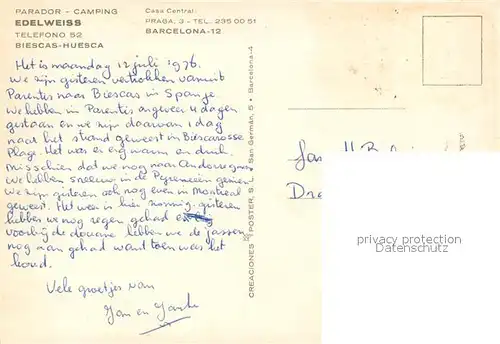 PARADOR - CAMPING
EDELWEISS
TELEFONO 52
BIESCAS-HUESCA
Casa Central:
PRAGA, 3 - TEL. 235 00 51
BARCELONA-12
Het is maandag 12 juli 1976.
We zijn gisteren vertrokken vanuit
Parentis naar Biescas in Spanje.
We hebben in Parentis ongeveer 4 dagen
gestaan en we zijn daarvan 1 dag
naar het strand geweest in Biscarosse
Plage. Het was er erg warm en druk.
Misschien dat we nog naar Andorra gaan
We hebben sneeuw in de Pyreneeën gezien
We zijn gisteren ook nog even in
geweest. Het weer is hier zonnig, gisteren
hebben we nog regen gehad en
voorbij de douane hebben we de jassen
nog aan gehad want toen was het
koud.
Vele groetjes van
Jan en
CREACIONES POSTER, S. San Germán, 5 • Barcelona-4
Fam.
privacy protection
Datenschutz